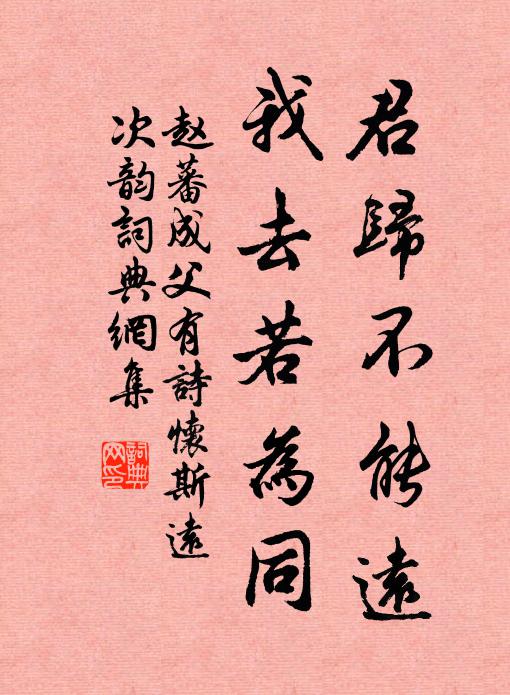 君歸不能遠
我去若為同
赵蕃成父有詩懷斯遠
次韵詞典網集
詞典網印